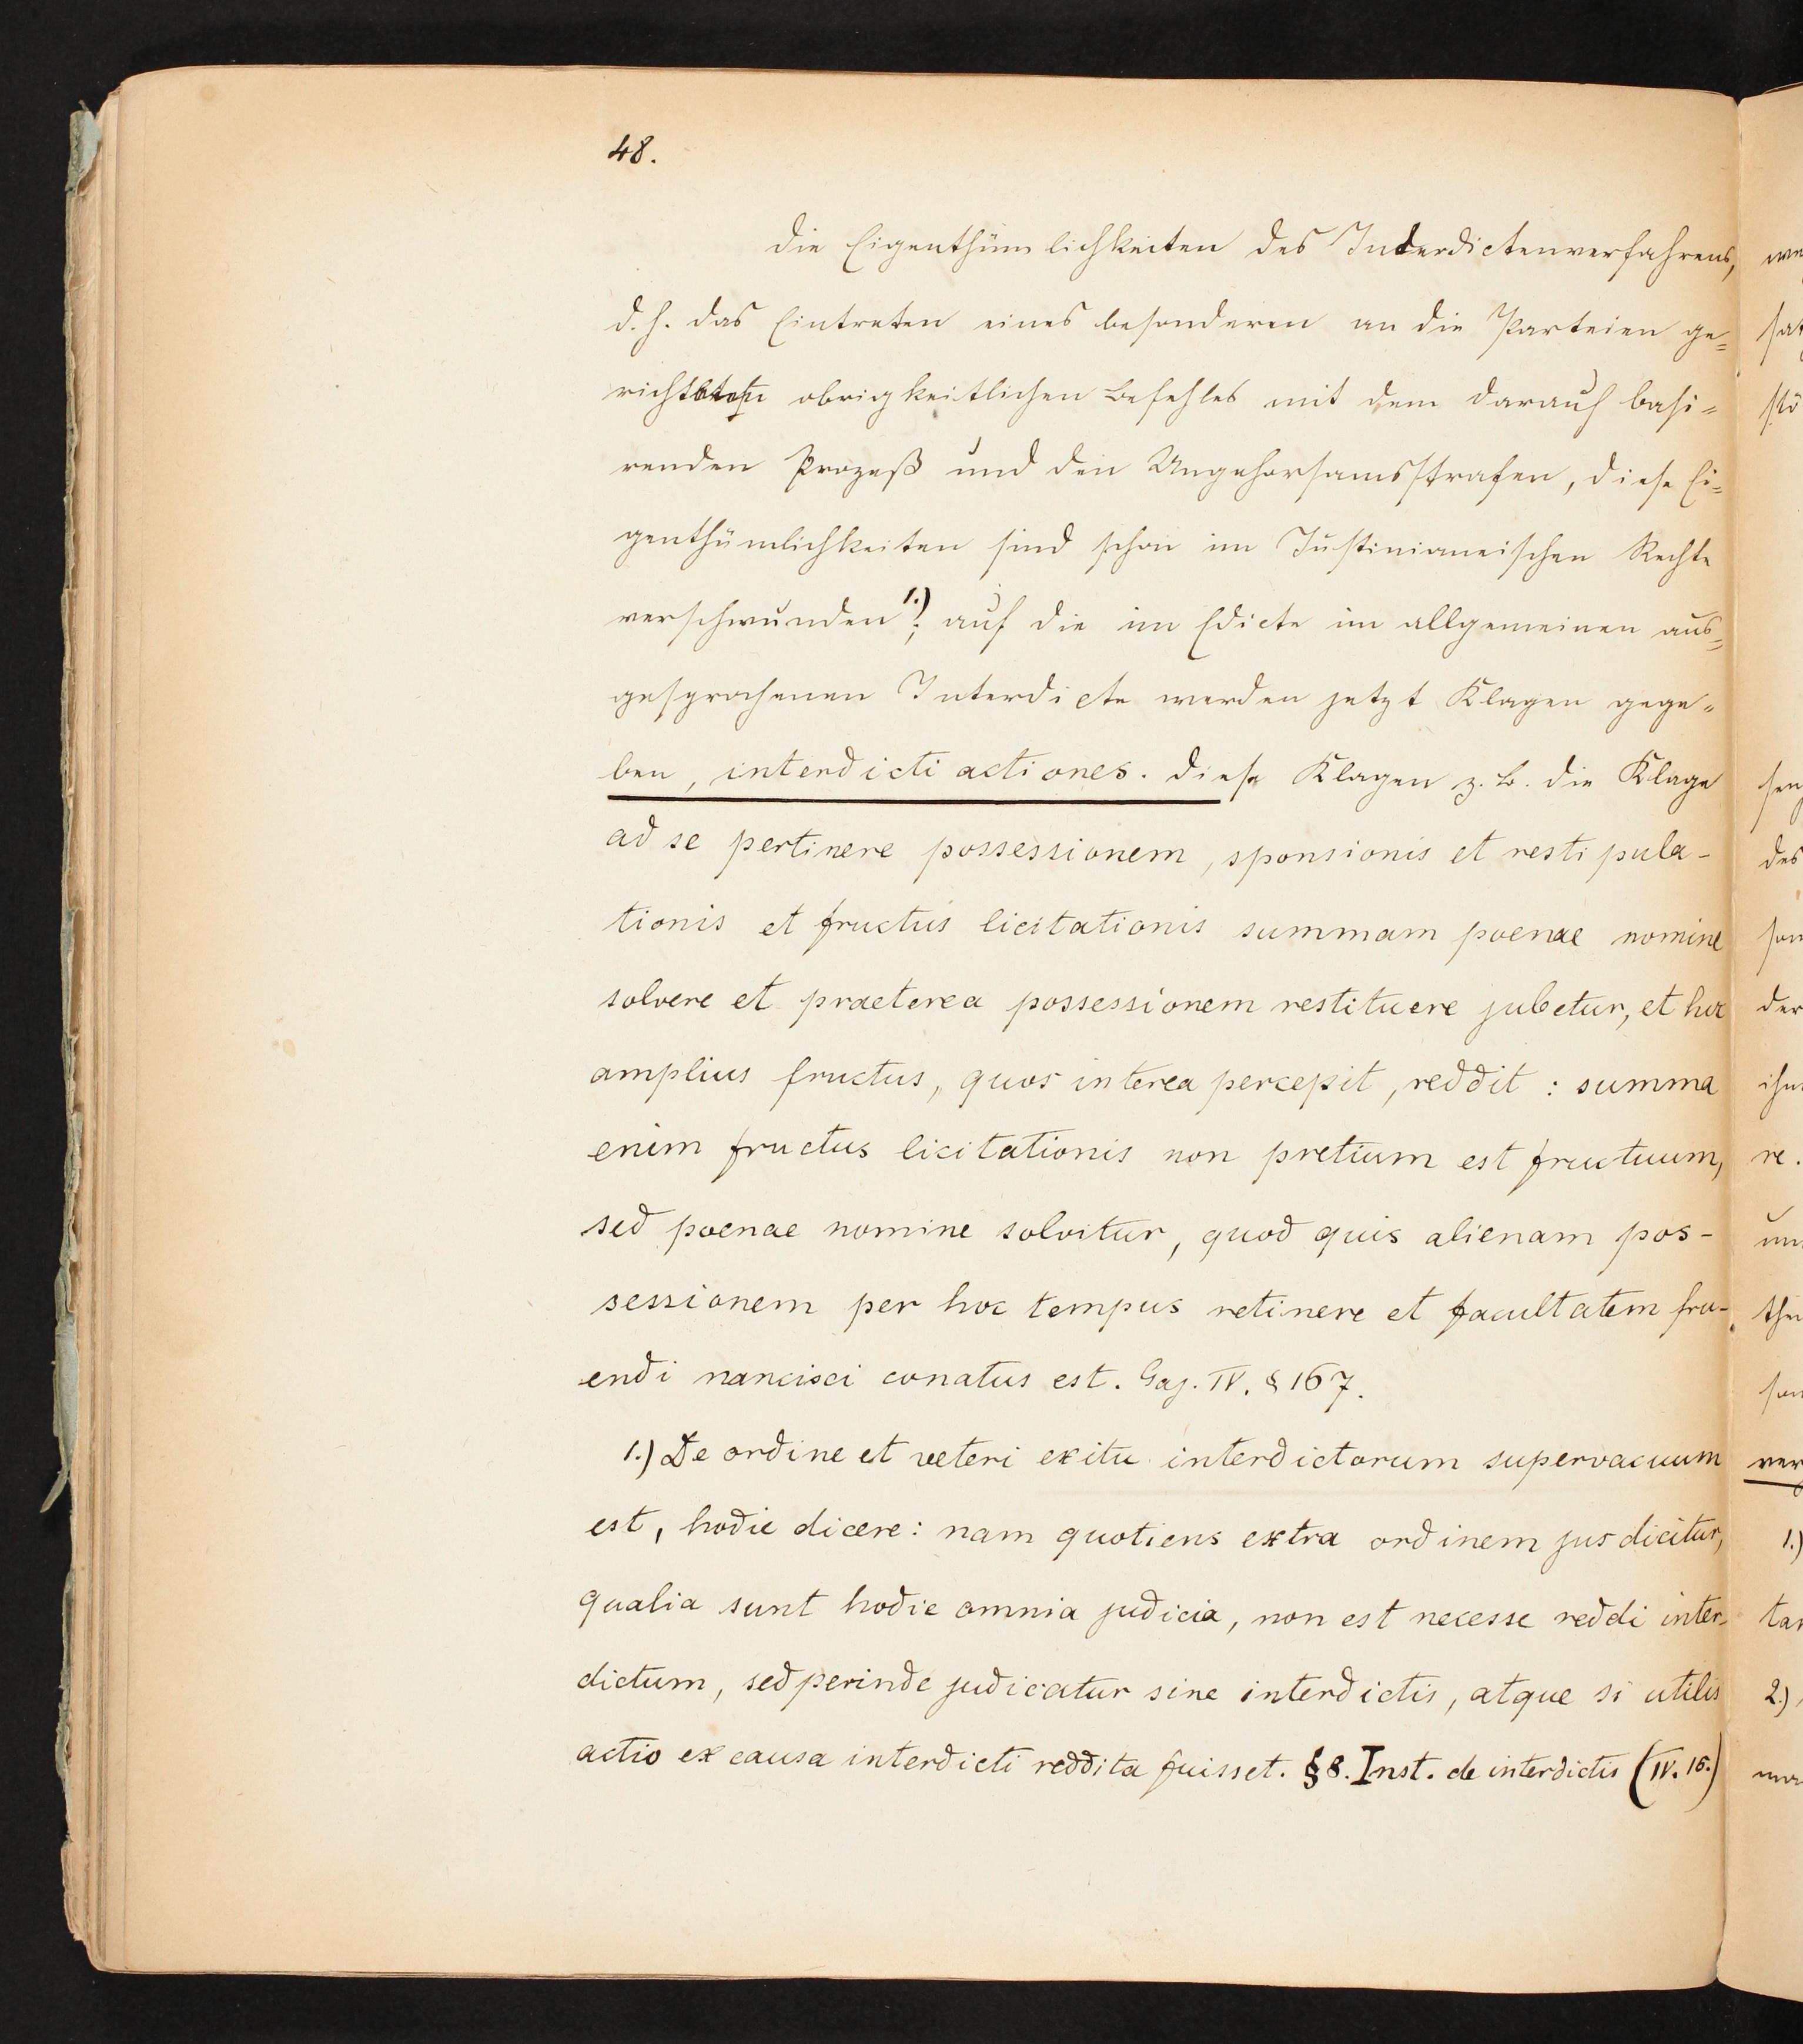 48.
die Eigenthümlichkeiten des Interdictenverfahrens,
d. h. das Eintreten eines besonderen an die Parteien ge=
richteten obrigkeitlichen Befehles mit dem darauf basi=
renden Prozeß und den Ungehorsamsstrafen, diese Ei=
genthümlichkeiten sind schon im Justinianeischen Rechte
verschwunden 1.); auf die im Edicte im allgemeinen aus=
gesprochenen Interdicte werden jetzt Klagen gege=
ben, interdicti actiones. diese Klagen z. B. die Klage
ad se pertinere possessionem, sponsionis et restipula-
tionis et fructus licitationis summam poenae nomine
solvere et praeterea possessionem restituere jubetur, et hoc
amplius fructus, quos interea percepit, reddit: summa
enim fructus licitationis non pretium est fructuum,
sed poenae nomine solvitur, quod quis alienam pos-
sessionem per hoc tempus retinere et facultatem fru-
endi nancisci conatus est. Gaj. IV. § 167.
1.) De ordine et veteri exitu interdictorum supervacuum
est, hodie dicere: nam quotiens extra ordinem jus dicitur,
qualia sunt hodie omnia judicia, non est necesse reddi inter-
dictum, sed perinde judicatur sine interdictis, atque si utilis
actio ex causa interdicti reddita fuisset. § 8. Inst. de interdictis (IV. 15.)